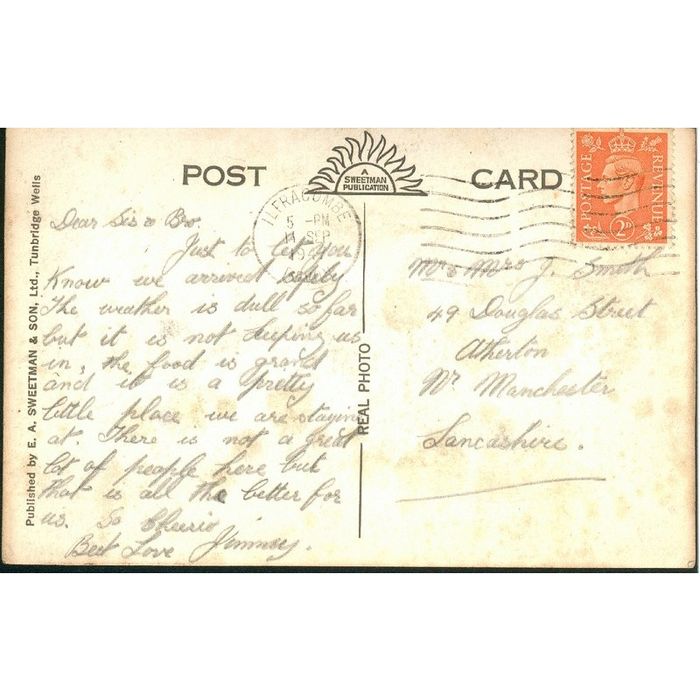 POST CARD
A
SWEETMAN
PUBLICATION
ILFRACOMBE
5 - PM
SEP
POSTAGE
REVENUE
2D
Published by E. A. SWEETMAN & SON, Ltd., Tunbridge Wells
REAL PHOTO
Dear Sis & Bro.
Just to let you
Know we arrived safely
The weather is dull so far
but it is not keeping us
in, the food is grand
and it is a pretty
little place we are staying
at. There is not a great
lot of people here but
that is all the better for
us. So Cheerio
Best Love Jimmy.
Mr & Mrs J. Smith
49 Douglas Street
Atherton
Nr Manchester
Lancashire.